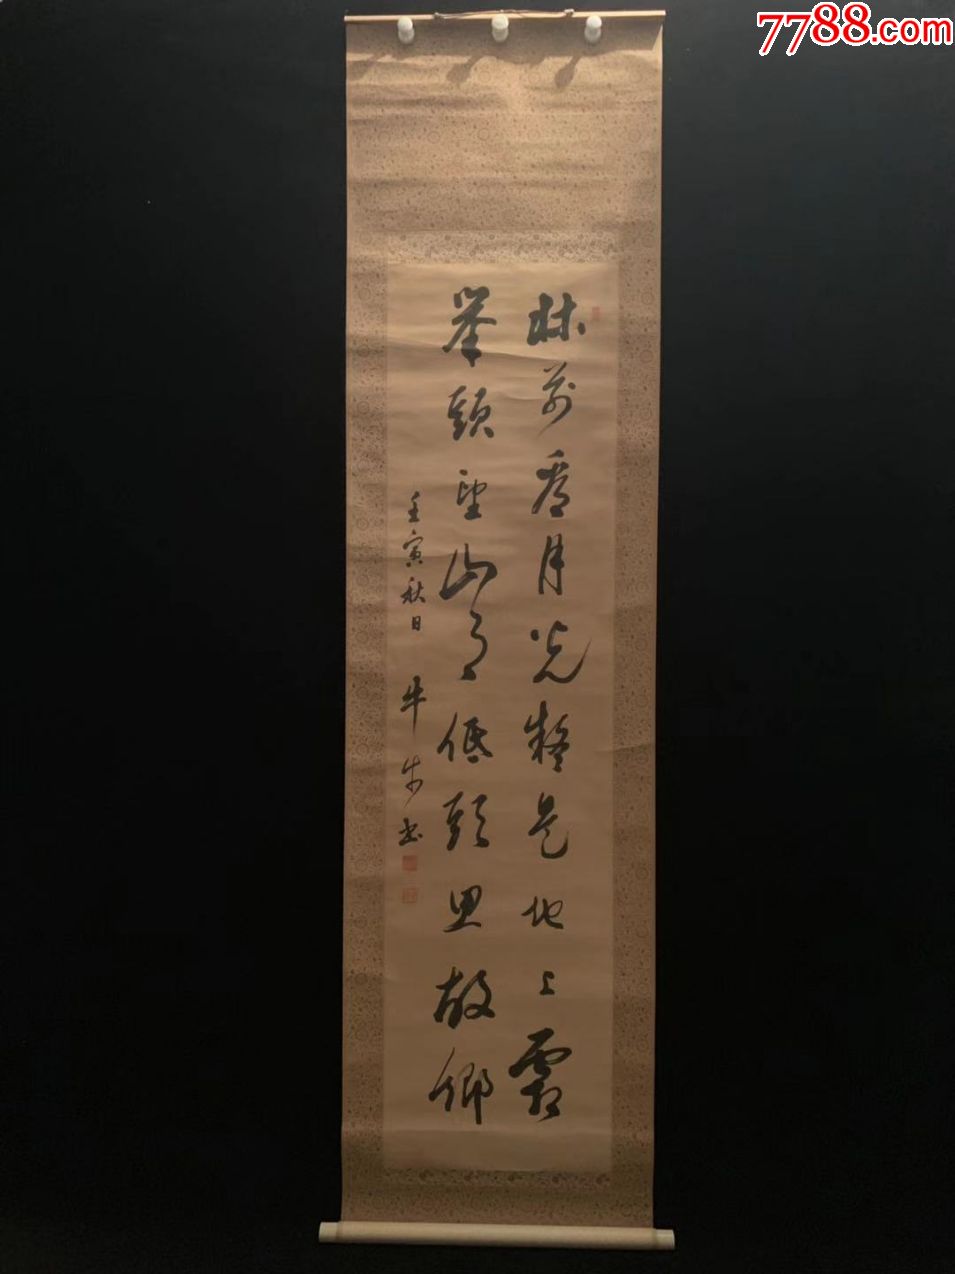 7788.com
牀前看月光疑是地上霜
舉頭望山月低頭思故鄉
壬寅秋日 牛步書